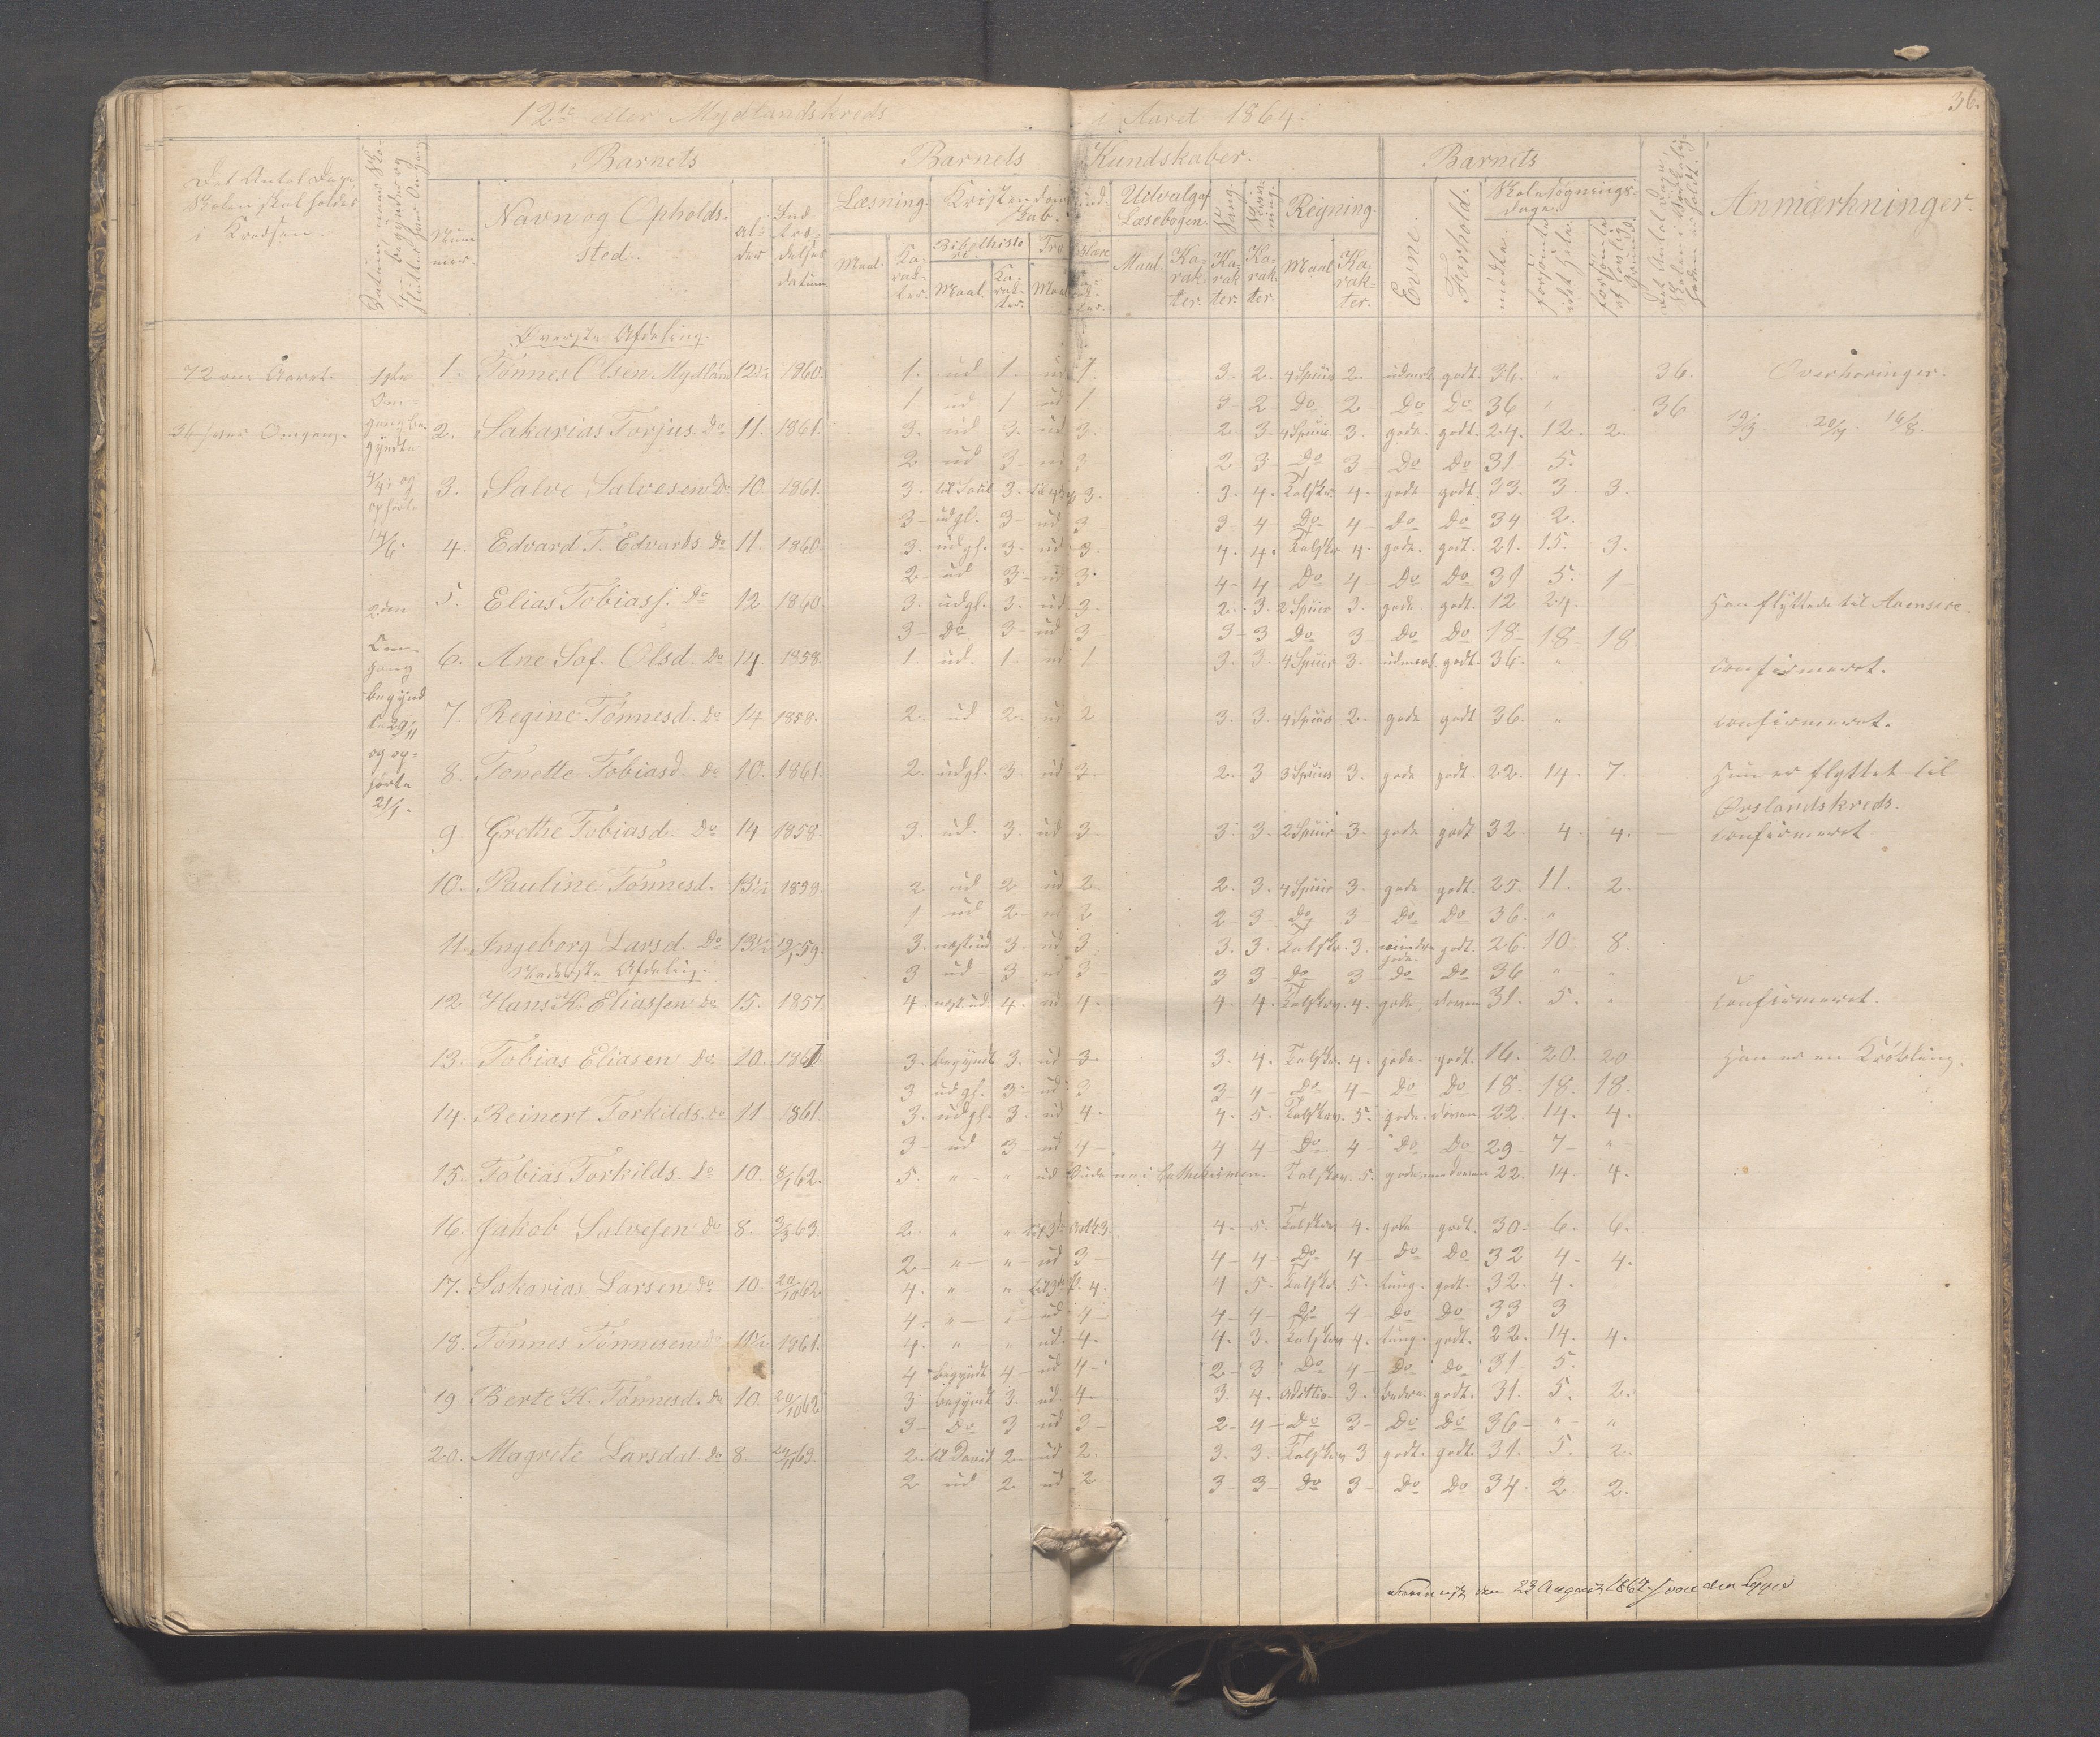 12te eller Mydlandskreds i Aaret 1864.
36.
Det Antal Dage Skolen skal holdes i Kredsen.
Nummer.
Barnets
Navn og Opholdssted.
Alder
Indtrædelsesdatum
Barnets Kundskaber.
Læsning. Kristendomskab. Udvalg af Læsebogen. Sang. Skrivning. Regning.
Maal. Karakter. Bibelhistorie Maal. Karakter. Troeslære Maal. Karakter. Maal. Karakter. Karakter. Karakter. Maal. Karakter.
Barnets
Evne. Forhold. Skolesøgningsdage.
mødte. forsømte i det Hele. forsømte af lovlig Grund.
Anmærkninger.
Øverste Afdeling.
72 om Aaret.
36 hver Omgang.
1ste Omgang begyndte
2den Omgang begyndte 29/11 og ophørte 21/1.
1. Tønnes Olsen Mydland 12½ 1860. 1. ud 1. ud 1. 3. 2. 4 Spiier 2. udmærk. godt. 36. " 36. Overhøringer.
1 ud 1 ud 1 3 2 Do 2 Do Do 36 " 36
2. Sakarias Torjus. Do 11. 1861. 3. ud 3. ud 3. 2. 3. 4 Spiier. 3. gode. godt. 24. 12. 2.
2 ud 3 ud 3 2 3 Do 3 Do Do 31 5.
3. Salve Salvesen Do 10. 1861. 3. til Saul 3. 3. 3. 4. Talskr. 4. gode godt. 33. 3. 3.
3 udgl. 3 ud 3 3 4 Do 4 Do Do 34 2.
4. Edvard T. Edvards. Do 11. 1860. 3. udgl. 3. ud 3. 4. 4. Talskr. 4. gode. godt. 21. 15. 3.
2 ud 3 ud 3. 4 4 Do 4 Do Do 31 5. 1
5. Elias Tobiass. Do 12 1860. 3. udgl. 3. ud 3. 2. 3. 2 Spiier 3. gode. godt. 12 24. Han flyttede til Aaensire.
3 Do 3 ud 3 3 3 Do 3 Do Do 18 18 18
6. Ane Sof. Olsd. Do 14 1858. 1. ud. 1. ud 1. 3. 3. 4 Spiier 3. udmærk. godt. 36. " confirmeret.
7. Regine Tønnesd. Do 14 1858. 2. ud 2. ud 2 3. 3. 4 Spiier 2. gode godt 36. " confirmeret.
8. Tonette Tobiasd. Do 10. 1861. 2. udgl. 3. ud 3. 2. 3 3 Spiier 3. gode godt. 22. 14. 7. Hun er flyttet til Ørslandskreds.
9. Grethe Tobiasd. Do 14 1858. 3. ud. 3. ud 3. 3. 3. 2 Spiier 3. gode godt 32. 4. 4. confirmeret
10. Pauline Tønnesd. 13½ 1859. 2 ud 2 ud 2. 2. 3. 4 Spiier 3. gode godt. 25. 11. 2.
1 ud 2 ud 2 2 3 Do 3 Do Do 36. "
11. Ingeborg Larsd. Do 13½ 12/1 59. 3. næst ud 3. ud 3 3. 3. Talskr. 3. mindre gode. godt. 26. 10 8.
Nederste Afdeling.
3 ud 3 ud 3 3 3 Do 3 Do Do 36 " "
12 Hans K. Eliassen Do 15. 1857. 4. næst ud 4. ud 4. 4. 4. Talskrv. 4. gode. doven 31. 5. " Confirmeret.
13. Tobias Eliasen Do 10. 1861 3. begyndt 3. ud 3. 3. 4. Talskr. 4. gode. godt. 16. 20. 20 Han er en Krøbling.
3 udgl. 3 ud 3 3 4 Do 4 Do Do 18. 18. 18.
14. Reinert Torkilds. Do 11 1861. 3. udgl. 3. ud 4. 4. 5. Talskrv. 5. gode. doven 22. 14. 4.
3 ud 3 ud 4 4 4 Do 4 Do Do 29 7 "
15. Tobias Torkilds. Do 10. 8/1 62. 5. " " ud Talskrv. 5. gode, men doven 22. 14. 4.
16. Jakob Salvesen Do 8. 3/3 63. 2. " " 4. 5. Talskrv 4. gode godt. 30 6. 6.
2 " " ud 3 4 4 Do 4 Do Do 32 4 4.
17. Sakarias Larsen Do 10 20/10 62 4. " " 4. 4 5. Talskr. 5. tung. godt. 32. 4.
4. " " ud 4 4 4 Do 4 Do Do 33 3
18. Tønnes Tønnesen Do 11½ 1861. 4. " " ud. 4. 4. 3. Talskrv 4. tung. godt. 22. 14. 4.
4 begyndt 4 ud 4 2 3 Do 4 Do Do 31 5.
19 Berte K. Tønnesd. Do 10. 20/10 62 3 begyndt 3. ud 4. 3. 4. Addition 3. bedre. godt. 31. 5. 2.
3 Do 3 ud 3 2 4 Do 3 Do Do 36 " "
20. Magrete Larsdat Do 8. 63. 2. til David 2. ud 2. 3. 3. Talskrv 3 godt. godt. 31. 5. 2.
2 ud 2. ud 2 3 3 Do 3 Do Do 34. 2 2.
den 23 August 1864